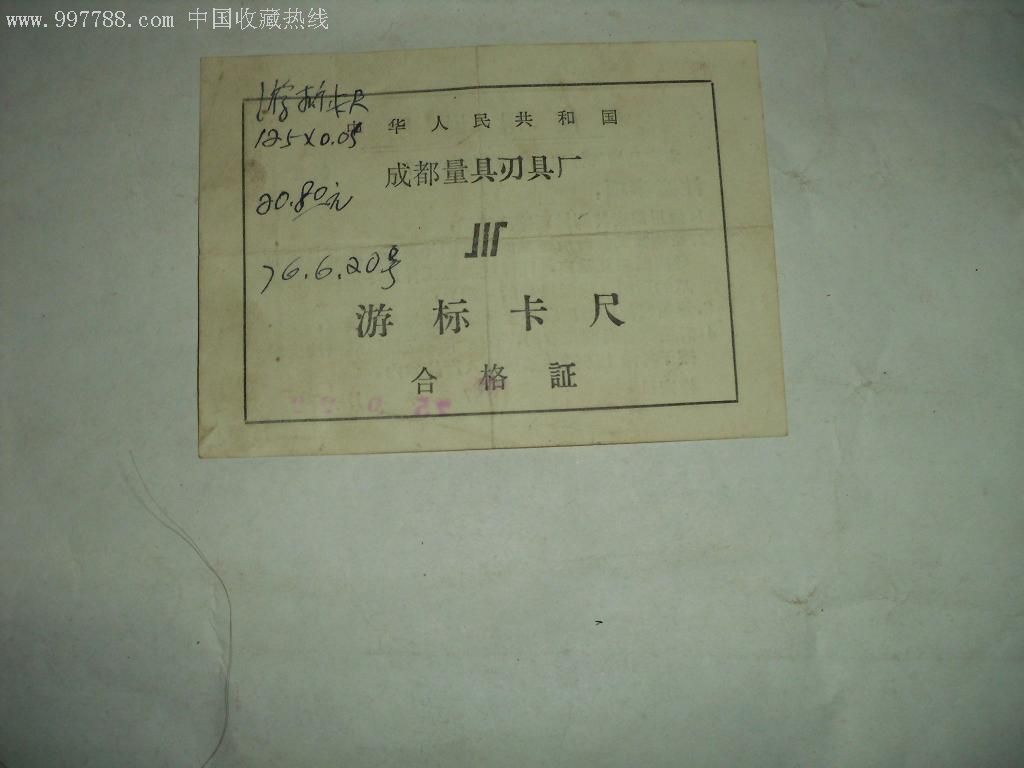 www.997788.com 中国收藏热线
游标卡尺
125×0.05
中华人民共和国
成都量具刃具厂
20.80元
76.6.20号
游标卡尺
合格証